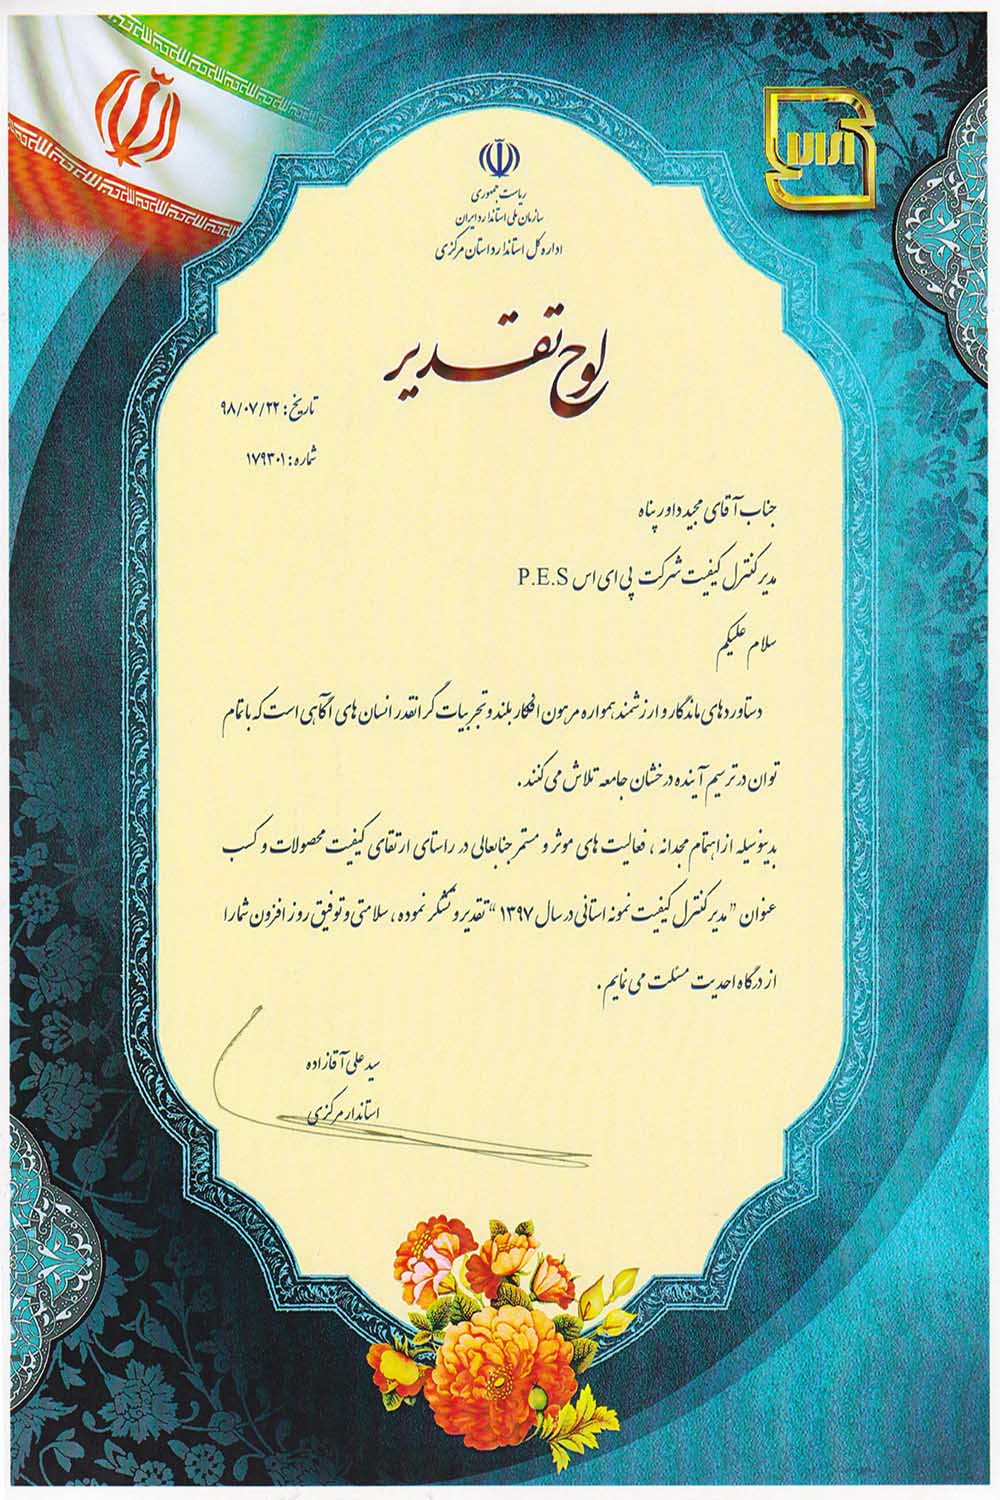 ریاست جمهوری
سازمان ملی استاندارد ایران
اداره کل استاندارد استان مرکزی
لوح تقدیر
تاریخ: ۹۸/۰۷/۲۲
شماره: ۱۷۹۳۰۱
جناب آقای مجید داور پناه
مدیر کنترل کیفیت شرکت پی ای اس P.E.S
سلام علیکم
دستاوردهای ماندگار و ارزشمند همواره مرهون افکار بلند و تجربیات گرانقدر انسان های آگاهی است که با تمام
توان در ترسیم آینده درخشان جامعه تلاش می کنند.
بدینوسیله از اهتمام مجدانه، فعالیت های موثر و مستمر جنابعالی در راستای ارتقای کیفیت محصولات و کسب
عنوان "مدیر کنترل کیفیت نمونه استانی در سال ۱۳۹۷" تقدیر و تشکر نموده، سلامتی و توفیق روز افزون شما را
از درگاه احدیت مسئلت می نمایم.
سید علی آقازاده
استاندار مرکزی